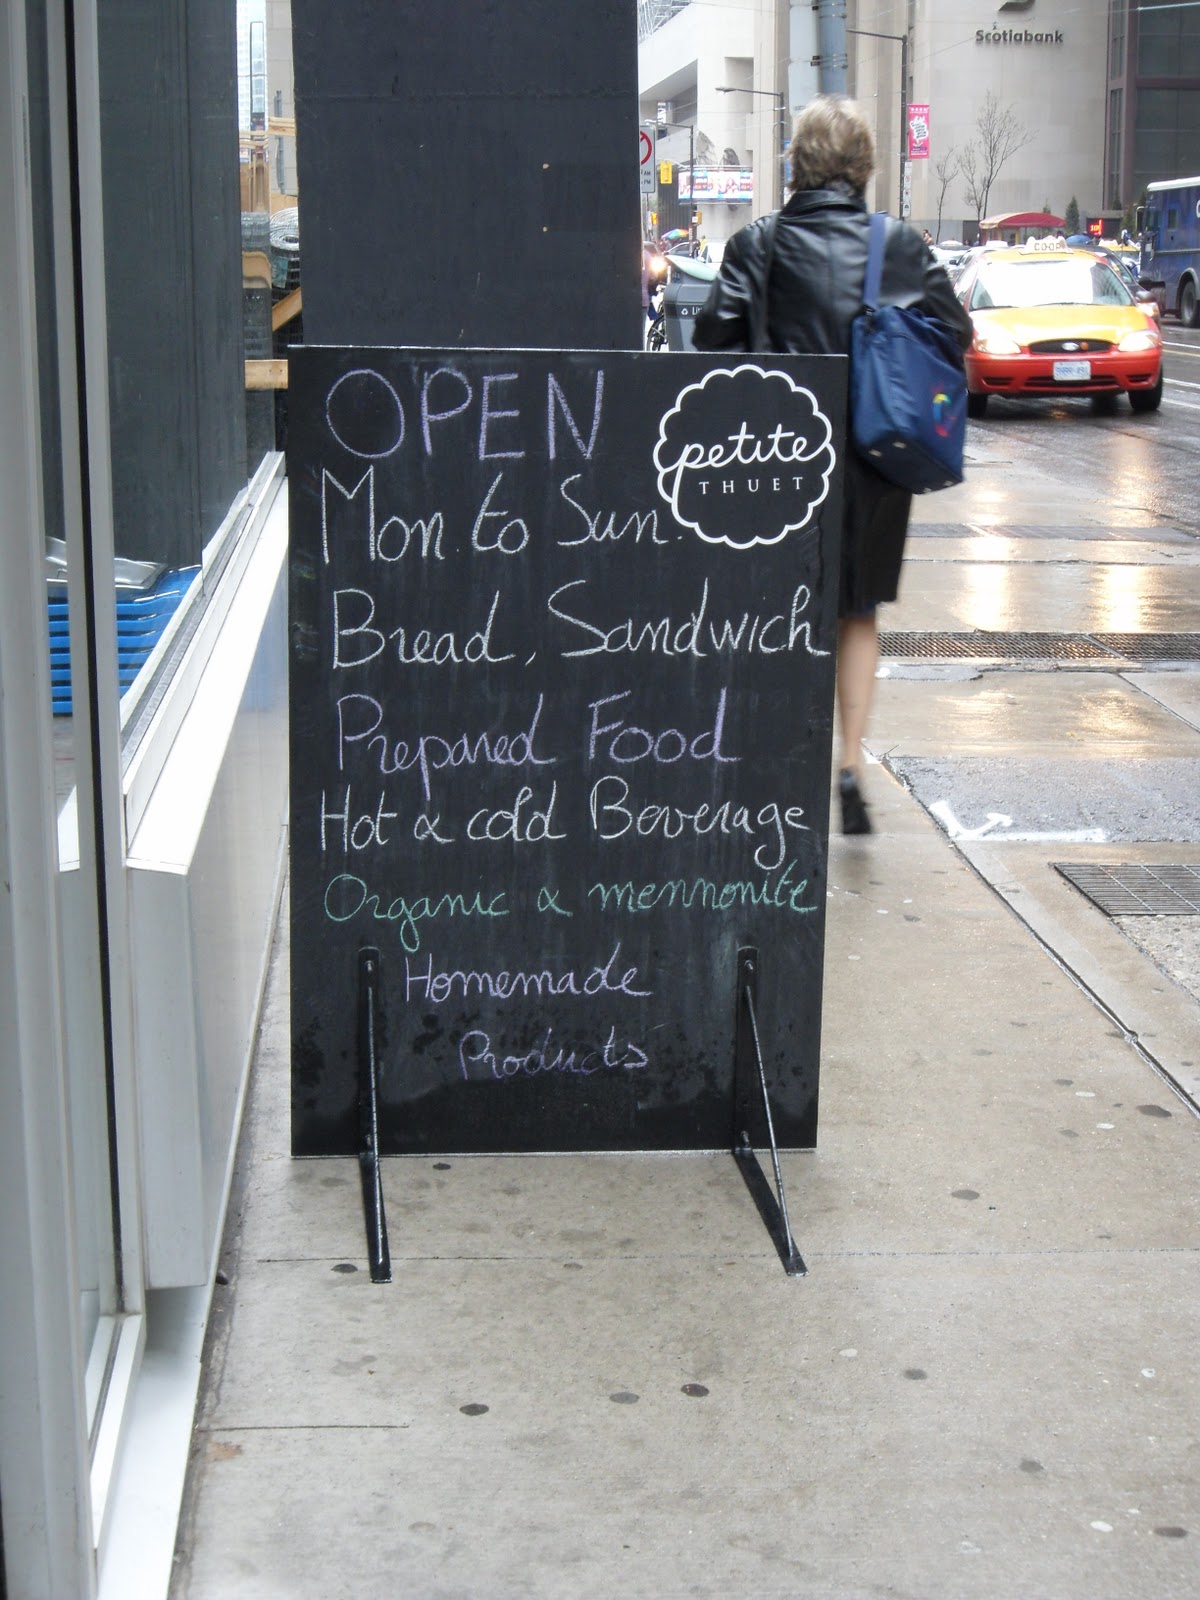 Scotiabank
CO-OP
OPEN
petite
THUET
Mon. to Sun.
Bread, Sandwich
Prepared Food
Hot & cold Beverage
Organic & mennonite
Homemade
Products